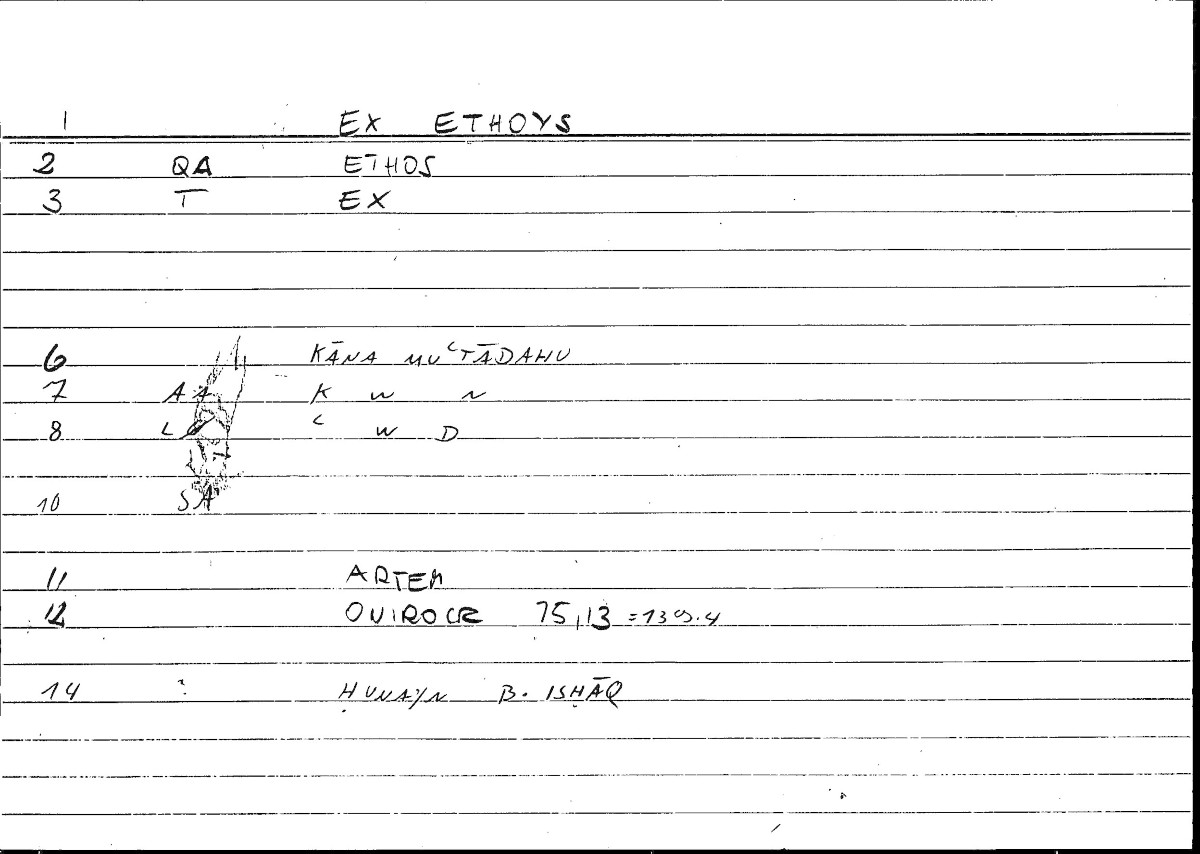 1 EX ETHOYS
2 QA ETHOS
3 T EX
6 KĀNA MUʿTĀDAHU
7 AA K W N
8 ʿ W D
10 SA
11 ARTEM
12 OUIROCR 75,13 =139.4
14 ? ḤUNAYN B. ISḤĀQ